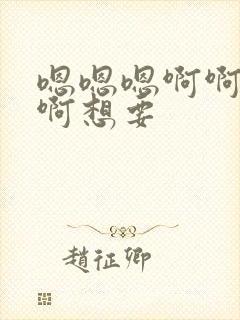 嗯嗯嗯啊啊
啊想要
趙征卿